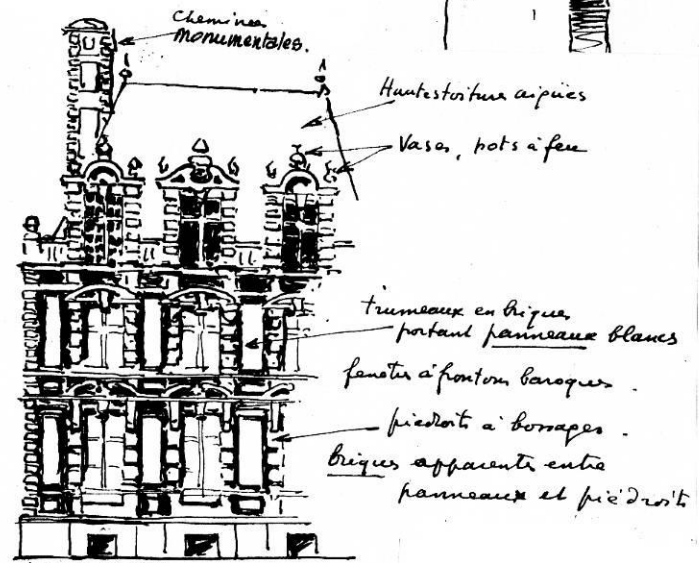 Cheminées
monumentales.
Hautes toiture aigües
Vases, pots à feu
trumeaux en briques
portant panneaux blancs
fenêtres à frontons baroques.
piedroits à bossages.
briques apparentes entre
panneaux et piédroits